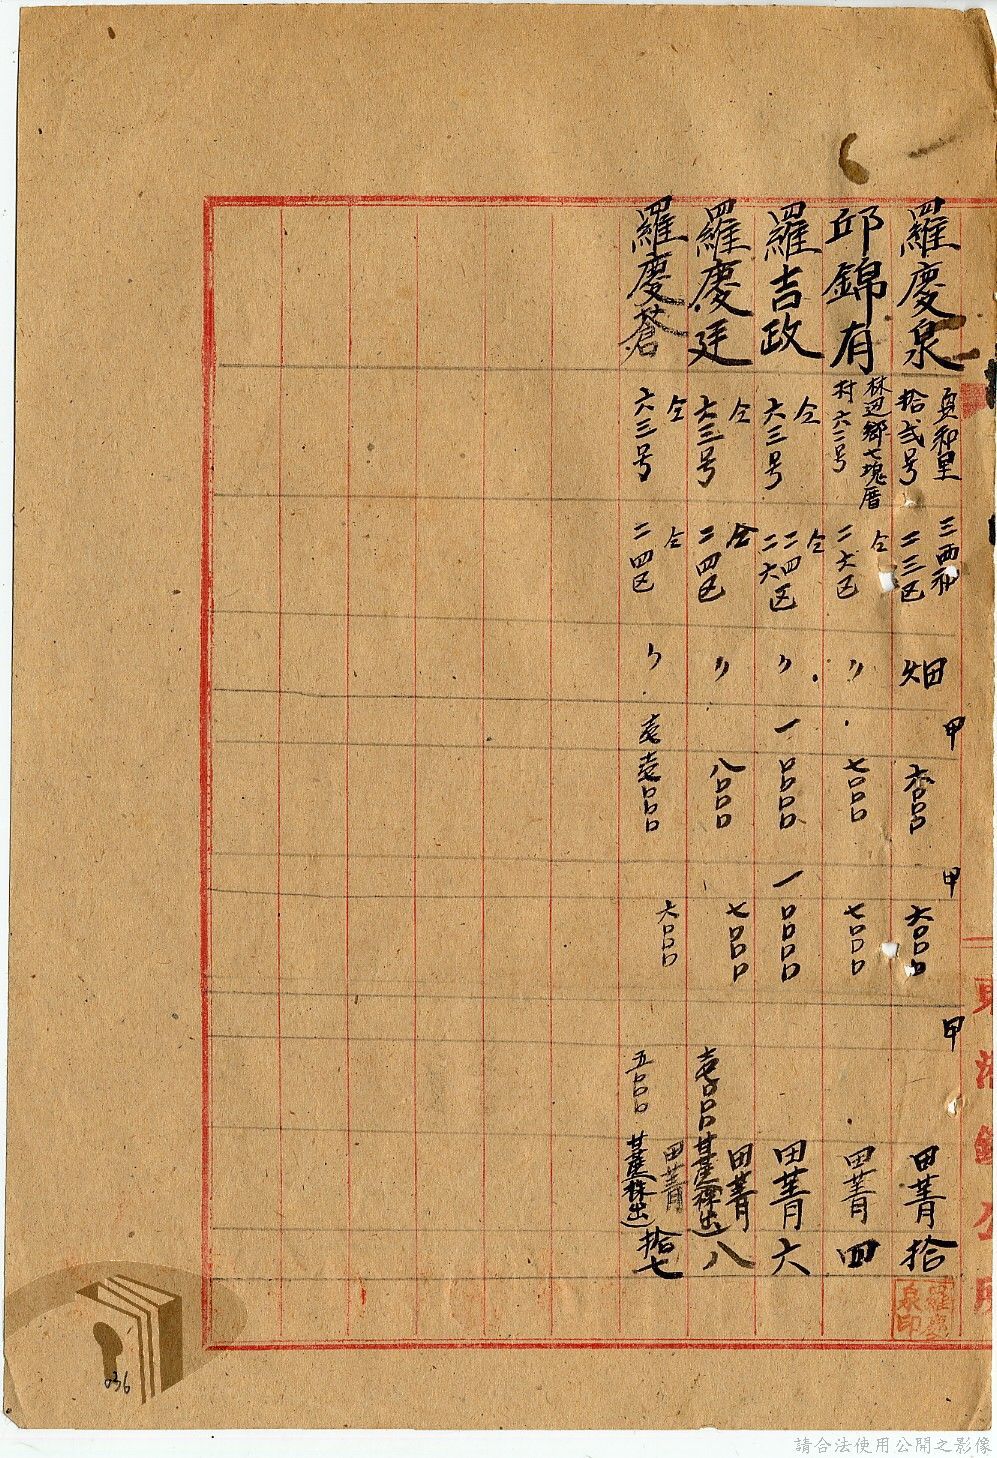 羅慶泉 貞和里拾弐号 三西和二三区 畑 甲六〇〇〇 甲六〇〇〇 甲 田菁 拾
邱錦有 林辺郷七塊厝村六二号 仝二六区 〃 七〇〇〇 七〇〇〇 田菁 四
羅吉政 仝六三号 仝二四二六区 〃 一〇〇〇〇 一〇〇〇〇 田菁 六
羅慶廷 仝六三号 仝二四区 〃 八〇〇〇 七〇〇〇 壱〇〇〇 田菁 甘蔗(株出) 八
羅慶蒼 仝六三号 仝二四区 〃 壱壱〇〇〇 六〇〇〇 五〇〇〇 田菁 甘蔗(株出) 拾七
東港鎮公所
036
請合法使用公開之影像